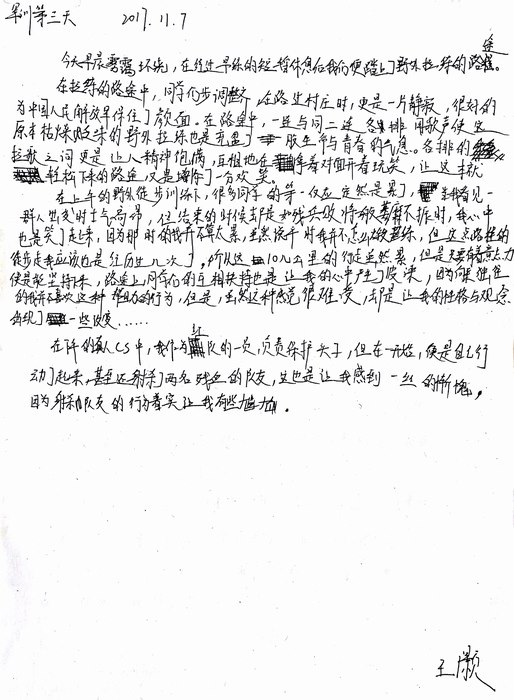 军训第三天 2017.11.7
今天早晨雾霭环绕,在经过早练的短暂休息后我们便踏上了野外拉练的路途。
在拉练的路途中,同学们步调整齐,在路过村庄时,更是一片静寂,很好的
为中国人民解放军保住了颜面。在路途中,一连与同二连各排用歌声使这
原本枯燥乏味的野外拉练也是充盈了一股生命与青春的气息。各排的
拉歌之间更是让人精神饱满,互相地在争着对面开着玩笑,让这本就
轻松下来的路途又是增添了一分欢笑。
在上午的野外徒步训练下,很多同学的第一反应定然是累了,看见一
群人出发时士气高昂,但结束的时候却是如残兵败将般萎靡不振时,我心中
也是笑了起来,因为那时的我并不算太累,虽然读高中时我并不怎么锻炼,但这点路程的
徒步走我应该也是经历过几次了。所以这10几公里的行走虽然累,但是只要有着意志力
便是能坚持下来,路途上同学们的互相扶持也是让我的心中产生了暖流,因为向来独来
的我并不喜欢这种帮助的行为,但是,虽然这种感觉很难受,却是让我的性格与观念
出现了一些改变……
在下午的真人CS中,我作为红队的一员,负责保护夫子,但在一开始,便是自己行
动了起来,甚至还射杀了两名残血的队友,这也是让我感到一丝的惭愧,
因为射杀队友的行为着实让我有些尴尬。
王颢